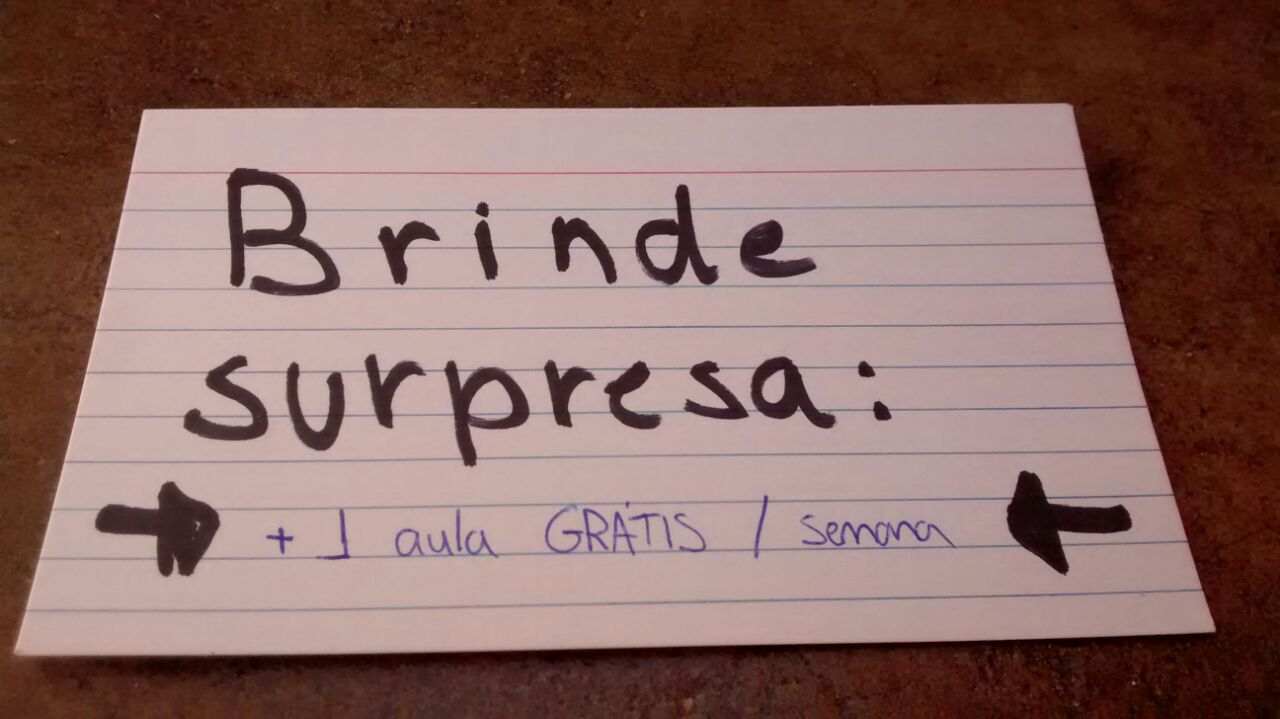 Brinde
surpresa:
+ 1 aula GRÁTIS / semana